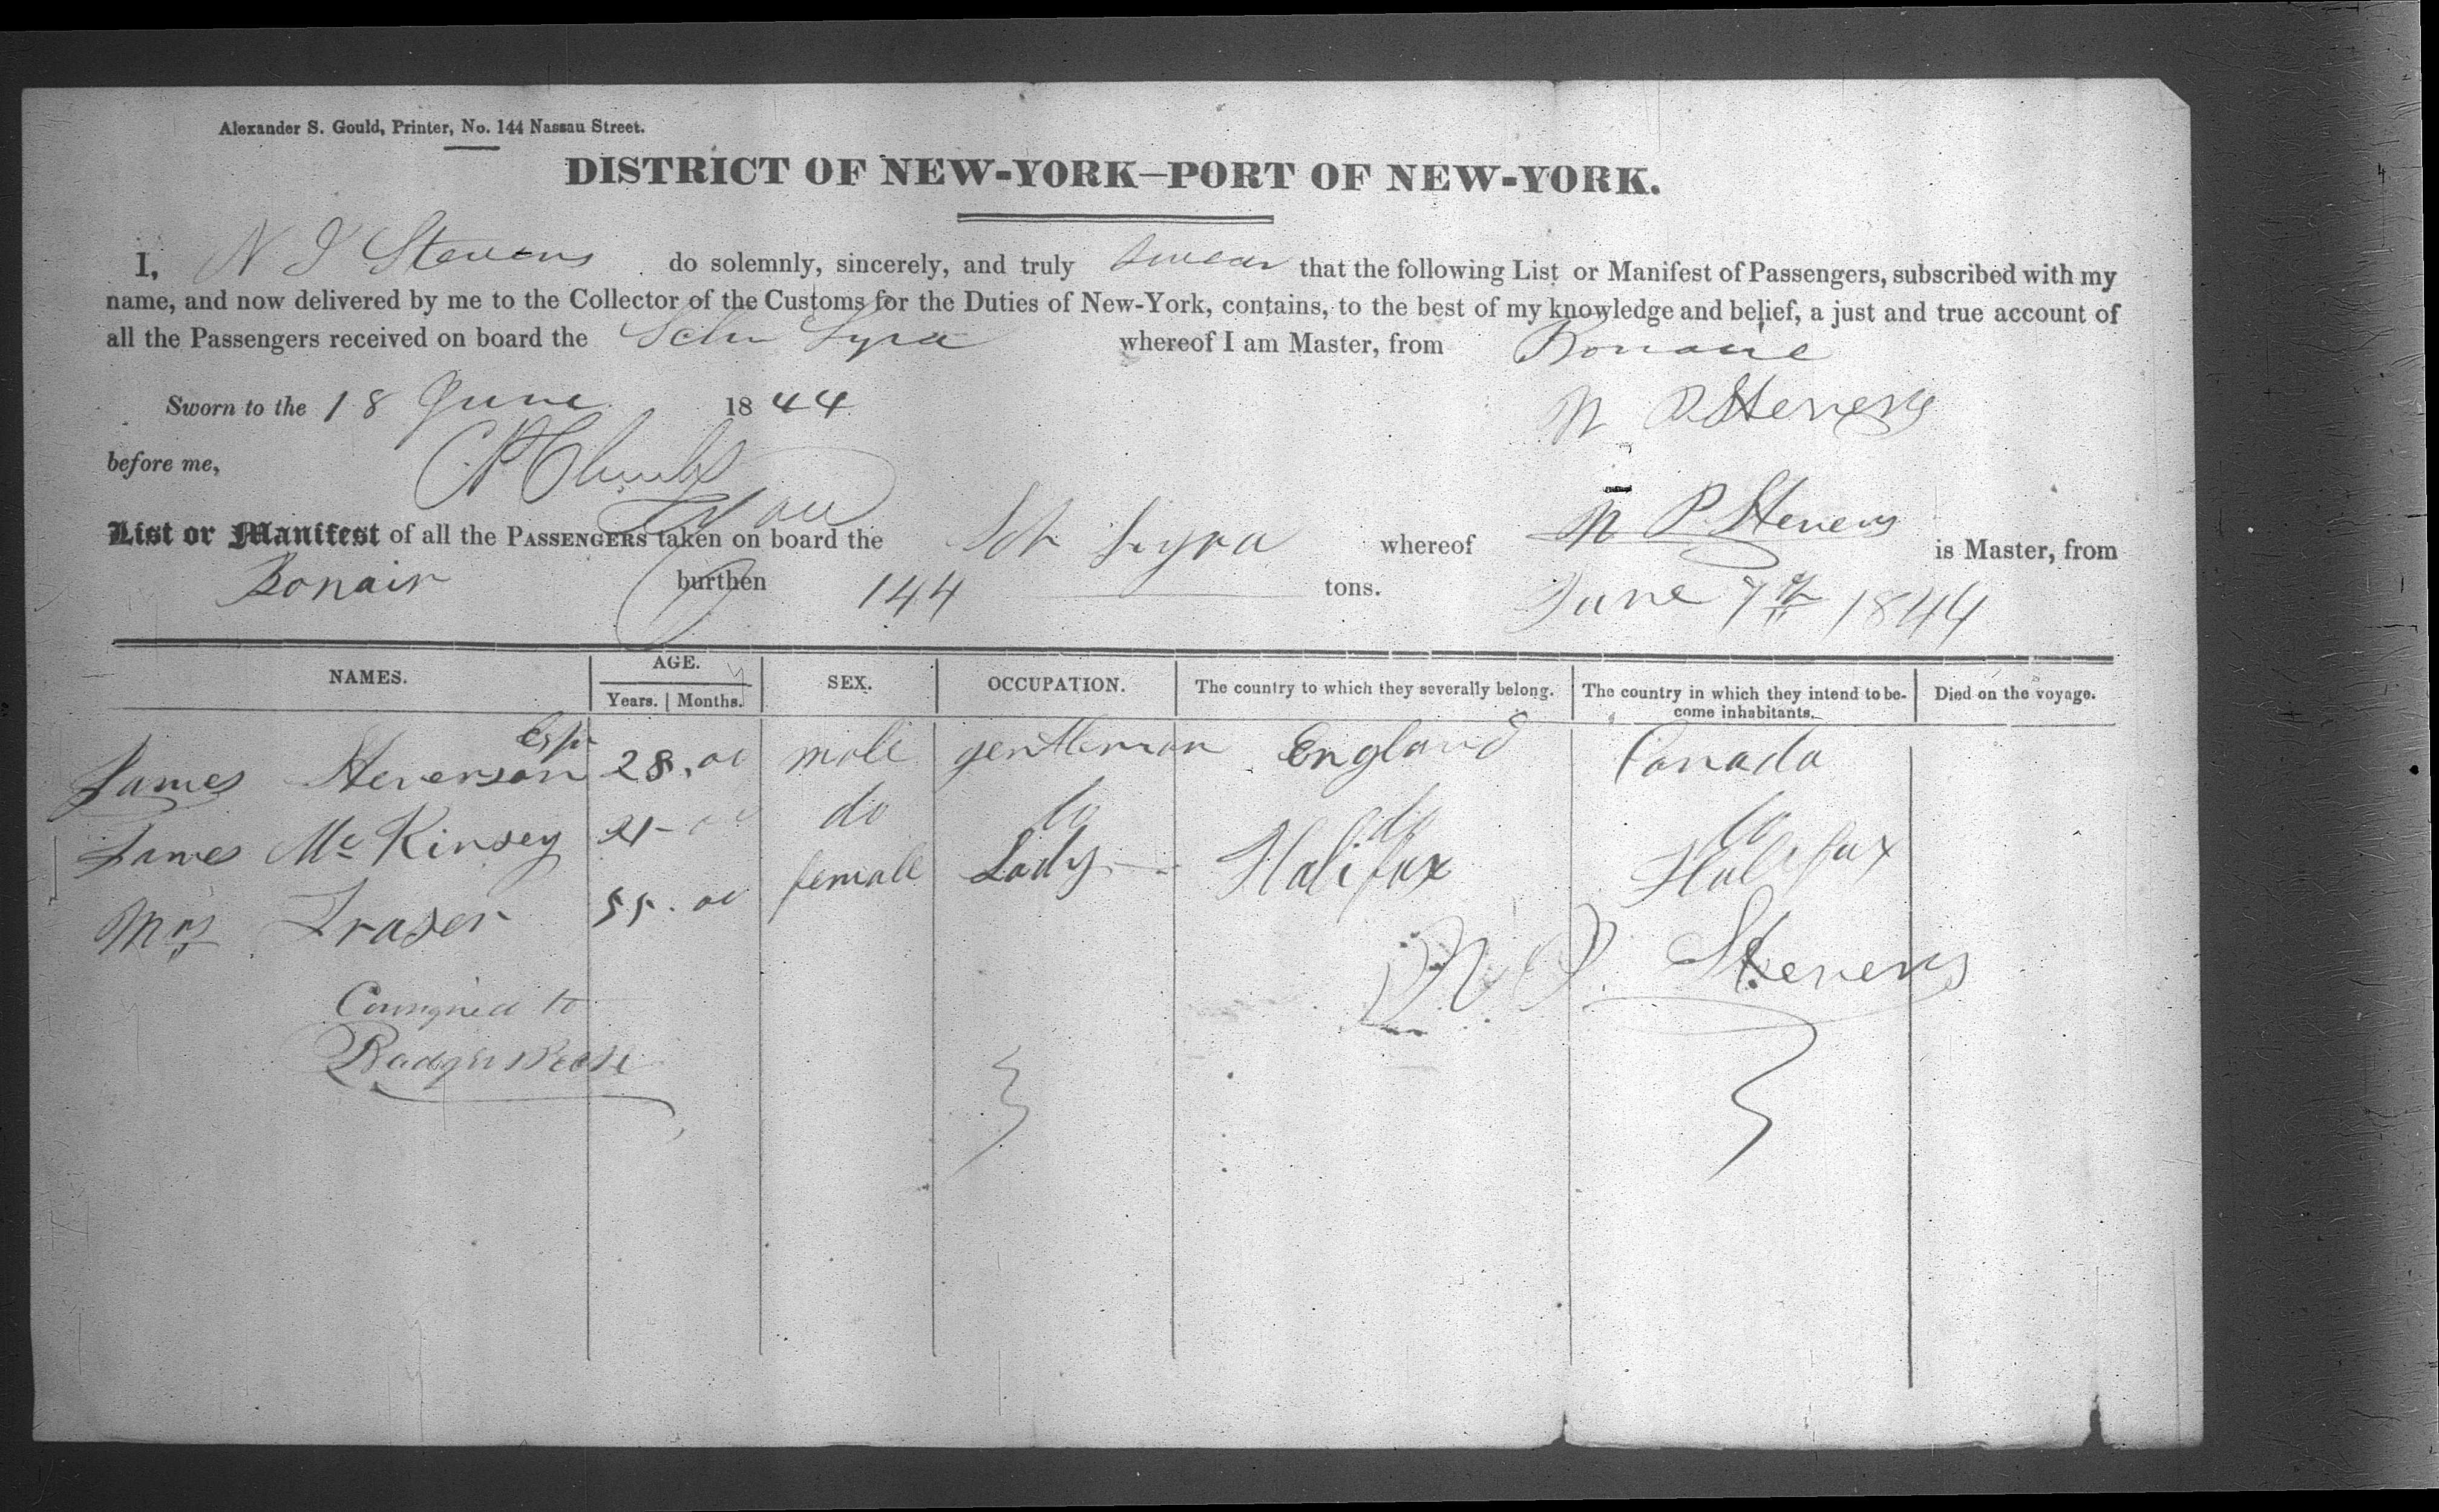 Alexander S. Gould, Printer, No. 144 Nassau Street.
DISTRICT OF NEW-YORK—PORT OF NEW-YORK.
I, N J Stevens do solemnly, sincerely, and truly swear that the following List or Manifest of Passengers, subscribed with my
name, and now delivered by me to the Collector of the Customs for the Duties of New-York, contains, to the best of my knowledge and belief, a just and true account of
all the Passengers received on board the Schr Lyra whereof I am Master, from Bonaire
Sworn to the 18 June 1844 N P Stevens
before me,
List or Manifest of all the PASSENGERS taken on board the Sch Lyra whereof N P Stevens is Master, from
Bonair burthen 144 tons. June 7th 1844
NAMES. AGE. Years. Months. SEX. OCCUPATION. The country to which they severally belong. The country in which they intend to be-come inhabitants. Died on the voyage.
James Steverson Esqr 28,00 male gentleman England Canada
James Mc Kinsey 21-00 do do do do
Mrs Fraser 55.00 female Lady Halifax Halifax
N P. Stevens
Consigned to